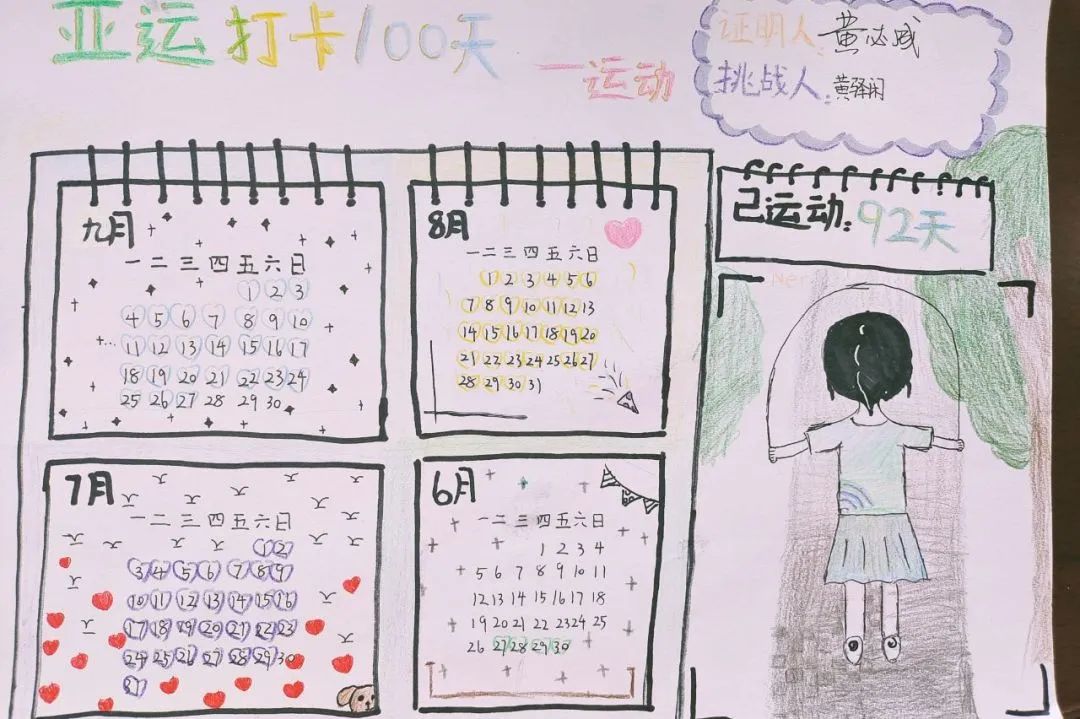 亚运打卡100天
—运动
证明人:黄必成
挑战人:黄驿闲
已运动:92天
九月
一二三四五六日
1 2 3
4 5 6 7 8 9 10
11 12 13 14 15 16 17
18 19 20 21 22 23 24
25 26 27 28 29 30
8月
一二三四五六日
1 2 3 4 5 6
7 8 9 10 11 12 13
14 15 16 17 18 19 20
21 22 23 24 25 26 27
28 29 30 31
7月
一二三四五六日
1 2
3 4 5 6 7 8 9
10 11 12 13 14 15 16
17 18 19 20 21 22 23
24 25 26 27 28 29 30
31
6月
一二三四五六日
1 2 3 4
5 6 7 8 9 10 11
12 13 14 15 16 17 18
19 20 21 22 23 24 25
26 27 28 29 30